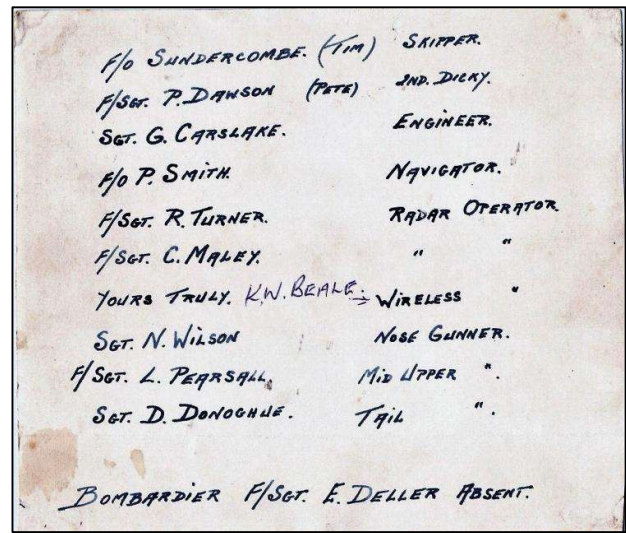 F/O SUNDERCOMBE. (TIM) SKIPPER.
F/SGT. P. DAWSON (PETE) 2ND. DICKY.
SGT. G. CARSLAKE. ENGINEER.
F/O P. SMITH. NAVIGATOR.
F/SGT. R. TURNER. RADAR OPERATOR
F/SGT. C. MALEY. " "
YOURS TRULY. K.W. BEALE. → WIRELESS "
SGT. N. WILSON NOSE GUNNER.
F/SGT. L. PEARSALL. MID UPPER ".
SGT. D. DONOGHUE. TAIL ".
BOMBARDIER F/SGT. E. DELLER ABSENT.